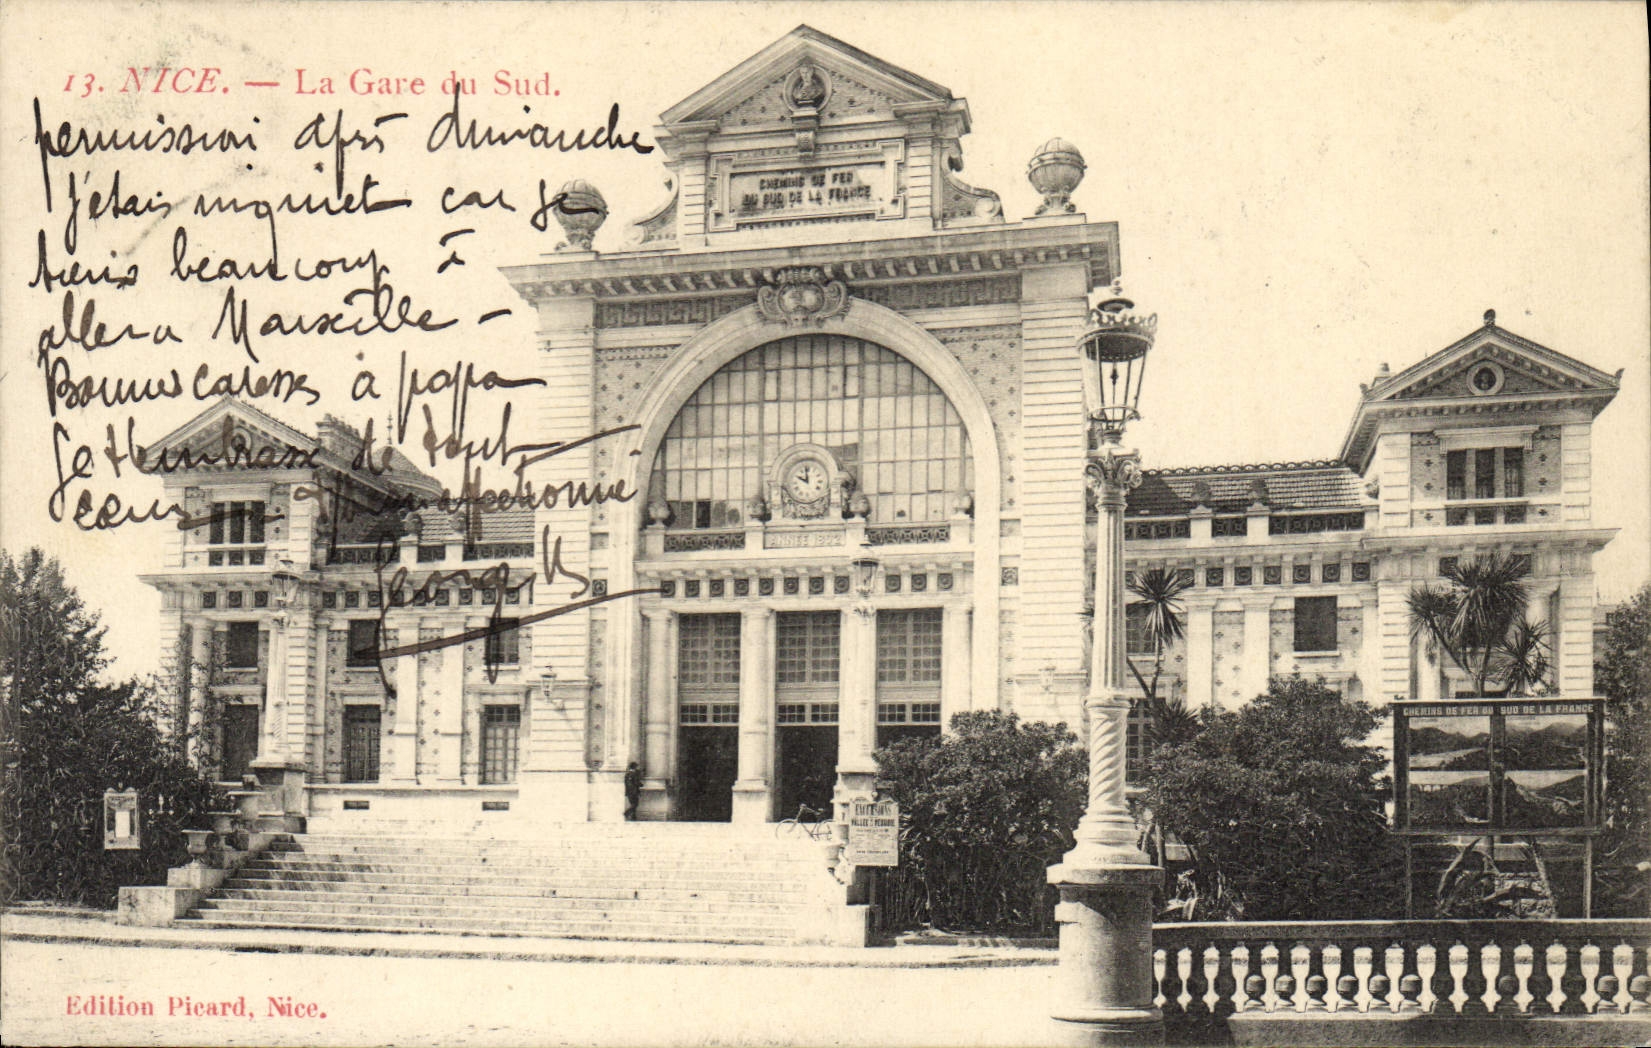 13. NICE. — La Gare du Sud.
permission après dimanche
j'étais inquiet car je
tiens beaucoup à
aller a Marseille —
Bonnes caresses à papa
Je t'embrasse de tout
cœur
Georges
CHEMINS DE FER
DU SUD DE LA FRANCE
ANNÉE 1892
CHEMINS DE FER DU SUD DE LA FRANCE
EXCURSIONS
Edition Picard, Nice.